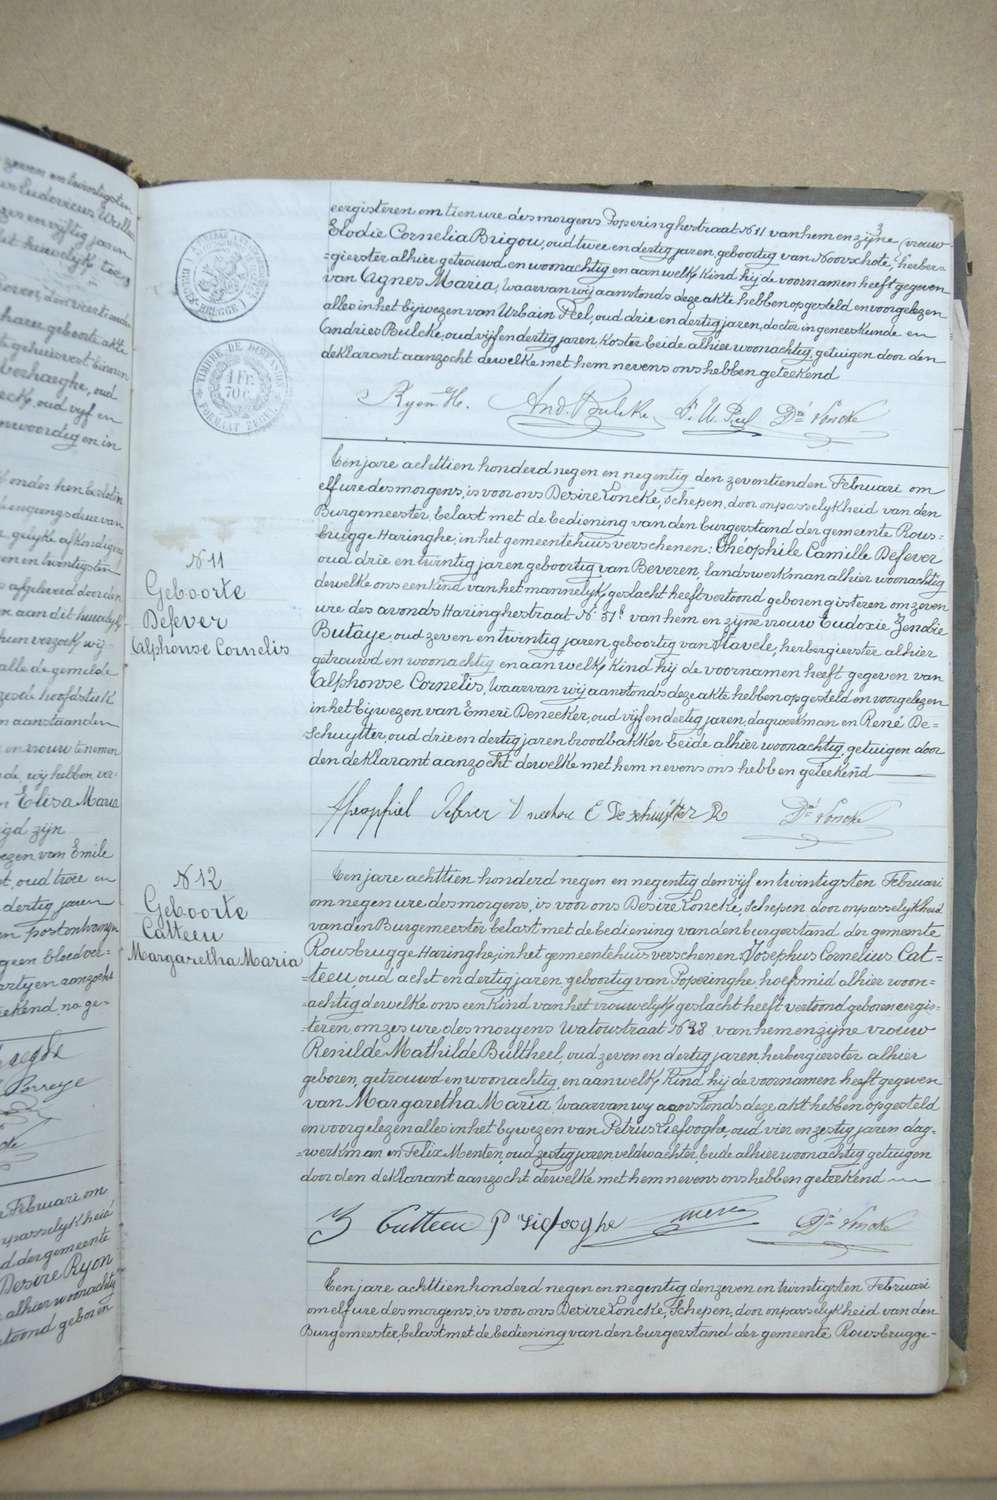 3
eergisteren om tien ure des morgens Poperinghestraat N 11 van hem en zijne vrouw
Elodie Cornelia Brigou, oud twee en dertig jaren, geboortig van Noordschote, herber=
=gierster alhier getrouwd en woonachtig en aan welk kind hij de voornamen heeft gegeven
van Agnes Maria, waarvan wij aanstonds deze akte hebben opgesteld en voorgelezen
alles in het bijwezen van Urbain Piel, oud drie en dertig jaren, doctor in geneeskunde en
Andries Bulcke, oud vijf en dertig jaren koster beide alhier woonachtig, getuigen door den
deklarant aanzocht dewelke met hem nevens ons hebben geteekend
Ryon H. And. Bulcke Dr. U. Piel Dré Loncke
TIMBRE DE DIMENSION
1 Fr.
70 c.
N 11
Geboorte
Defever
Alphonse Cornelis
Ten jare achttien honderd negen en negentig den zeventienden Februari om
elf ure des morgens, is voor ons Desiré Loncke, schepen, door onpasselykheid van den
Burgemeester, belast met de bediening van den burgerstand der gemeente Rous=
brugge Haringhe, in het gemeentehuis verschenen: Théophile Camille Defever
oud drie en twintig jaren geboortig van Beveren, landswerkman alhier woonachtig
dewelke ons een kind van het mannelyk geslacht heeft vertoond geboren gisteren om zeven
ure des avonds Haringhestraat N° 37b van hem en zijne vrouw Eudoxie Zenobie
Butaye, oud zeven en twintig jaren geboortig van Stavele, herbergierster alhier
getrouwd en woonachtig en aan welk kind hij de voornamen heeft gegeven van
Alphonse Cornelis, waarvan wij aanstonds deze akte hebben opgesteld en voorgelezen
in het bijwezen van Emeri Denecker, oud vijf en dertig jaren, dagwerkman en René De=
schuytter, oud drie en dertig jaren broodbakker beide alhier woonachtig, getuigen door
den deklarant aanzocht dewelke met hem nevens ons hebben geteekend
Defever E Deschuÿtter R Dré Loncke
N 12
Geboorte
Catteeu
Margaretha Maria
Ten jare achttien honderd negen en negentig den vijf en twintigsten Februari
om negen ure des morgens, is voor ons Desiré Loncke, schepen door onpasselykheid
van den Burgemeester belast met de bediening van den burgerstand der gemeente
Rousbrugge Haringhe, in het gemeentehuis verschenen Josephus Cornelius Cat=
=teeu, oud acht en dertig jaren geboortig van Poperinghe, hoefsmid alhier woon=
=achtig dewelke ons een kind van het vrouwelyk geslacht heeft vertoond geboren eergis=
=teren om zes ure des morgens Watoustraat N 38 van hem en zijne vrouw
Renilde Mathilde Bultheel, oud zeven en dertig jaren herbergierster alhier
geboren, getrouwd en woonachtig, en aan welk kind hij de voornamen heeft gegeven
van Margaretha Maria, waarvan wy aanstonds deze akt hebben opgesteld
en voorgelezen alles in het bywezen van Petrus Liefooghe, oud vier en zestig jaren dag=
=werkman en Felix Menten, oud zestig jaren veldwachter, beide alhier woonachtig getuigen
door den deklarant aanzocht dewelke met hem nevens ons hebben geteekend
Catteeu P Liefooghe Dré Loncke
Ten jare achttien honderd negen en negentig den zeven en twintigsten Februari
om elf ure des morgens, is voor ons Desiré Loncke, Schepen, door onpasselykheid van den
Burgemeester, belast met de bediening van den burgerstand der gemeente Rousbrugge-